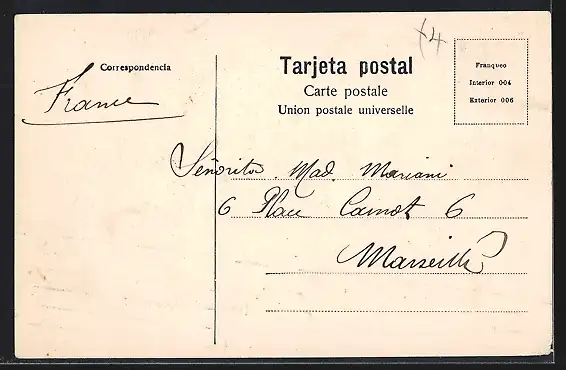 x4
Correspondencia
France
Tarjeta postal
Carte postale
Union postale universelle
Franqueo
Interior 004
Exterior 006
Señorita Mad. Mariani
6 Place Carnot 6
Marseille